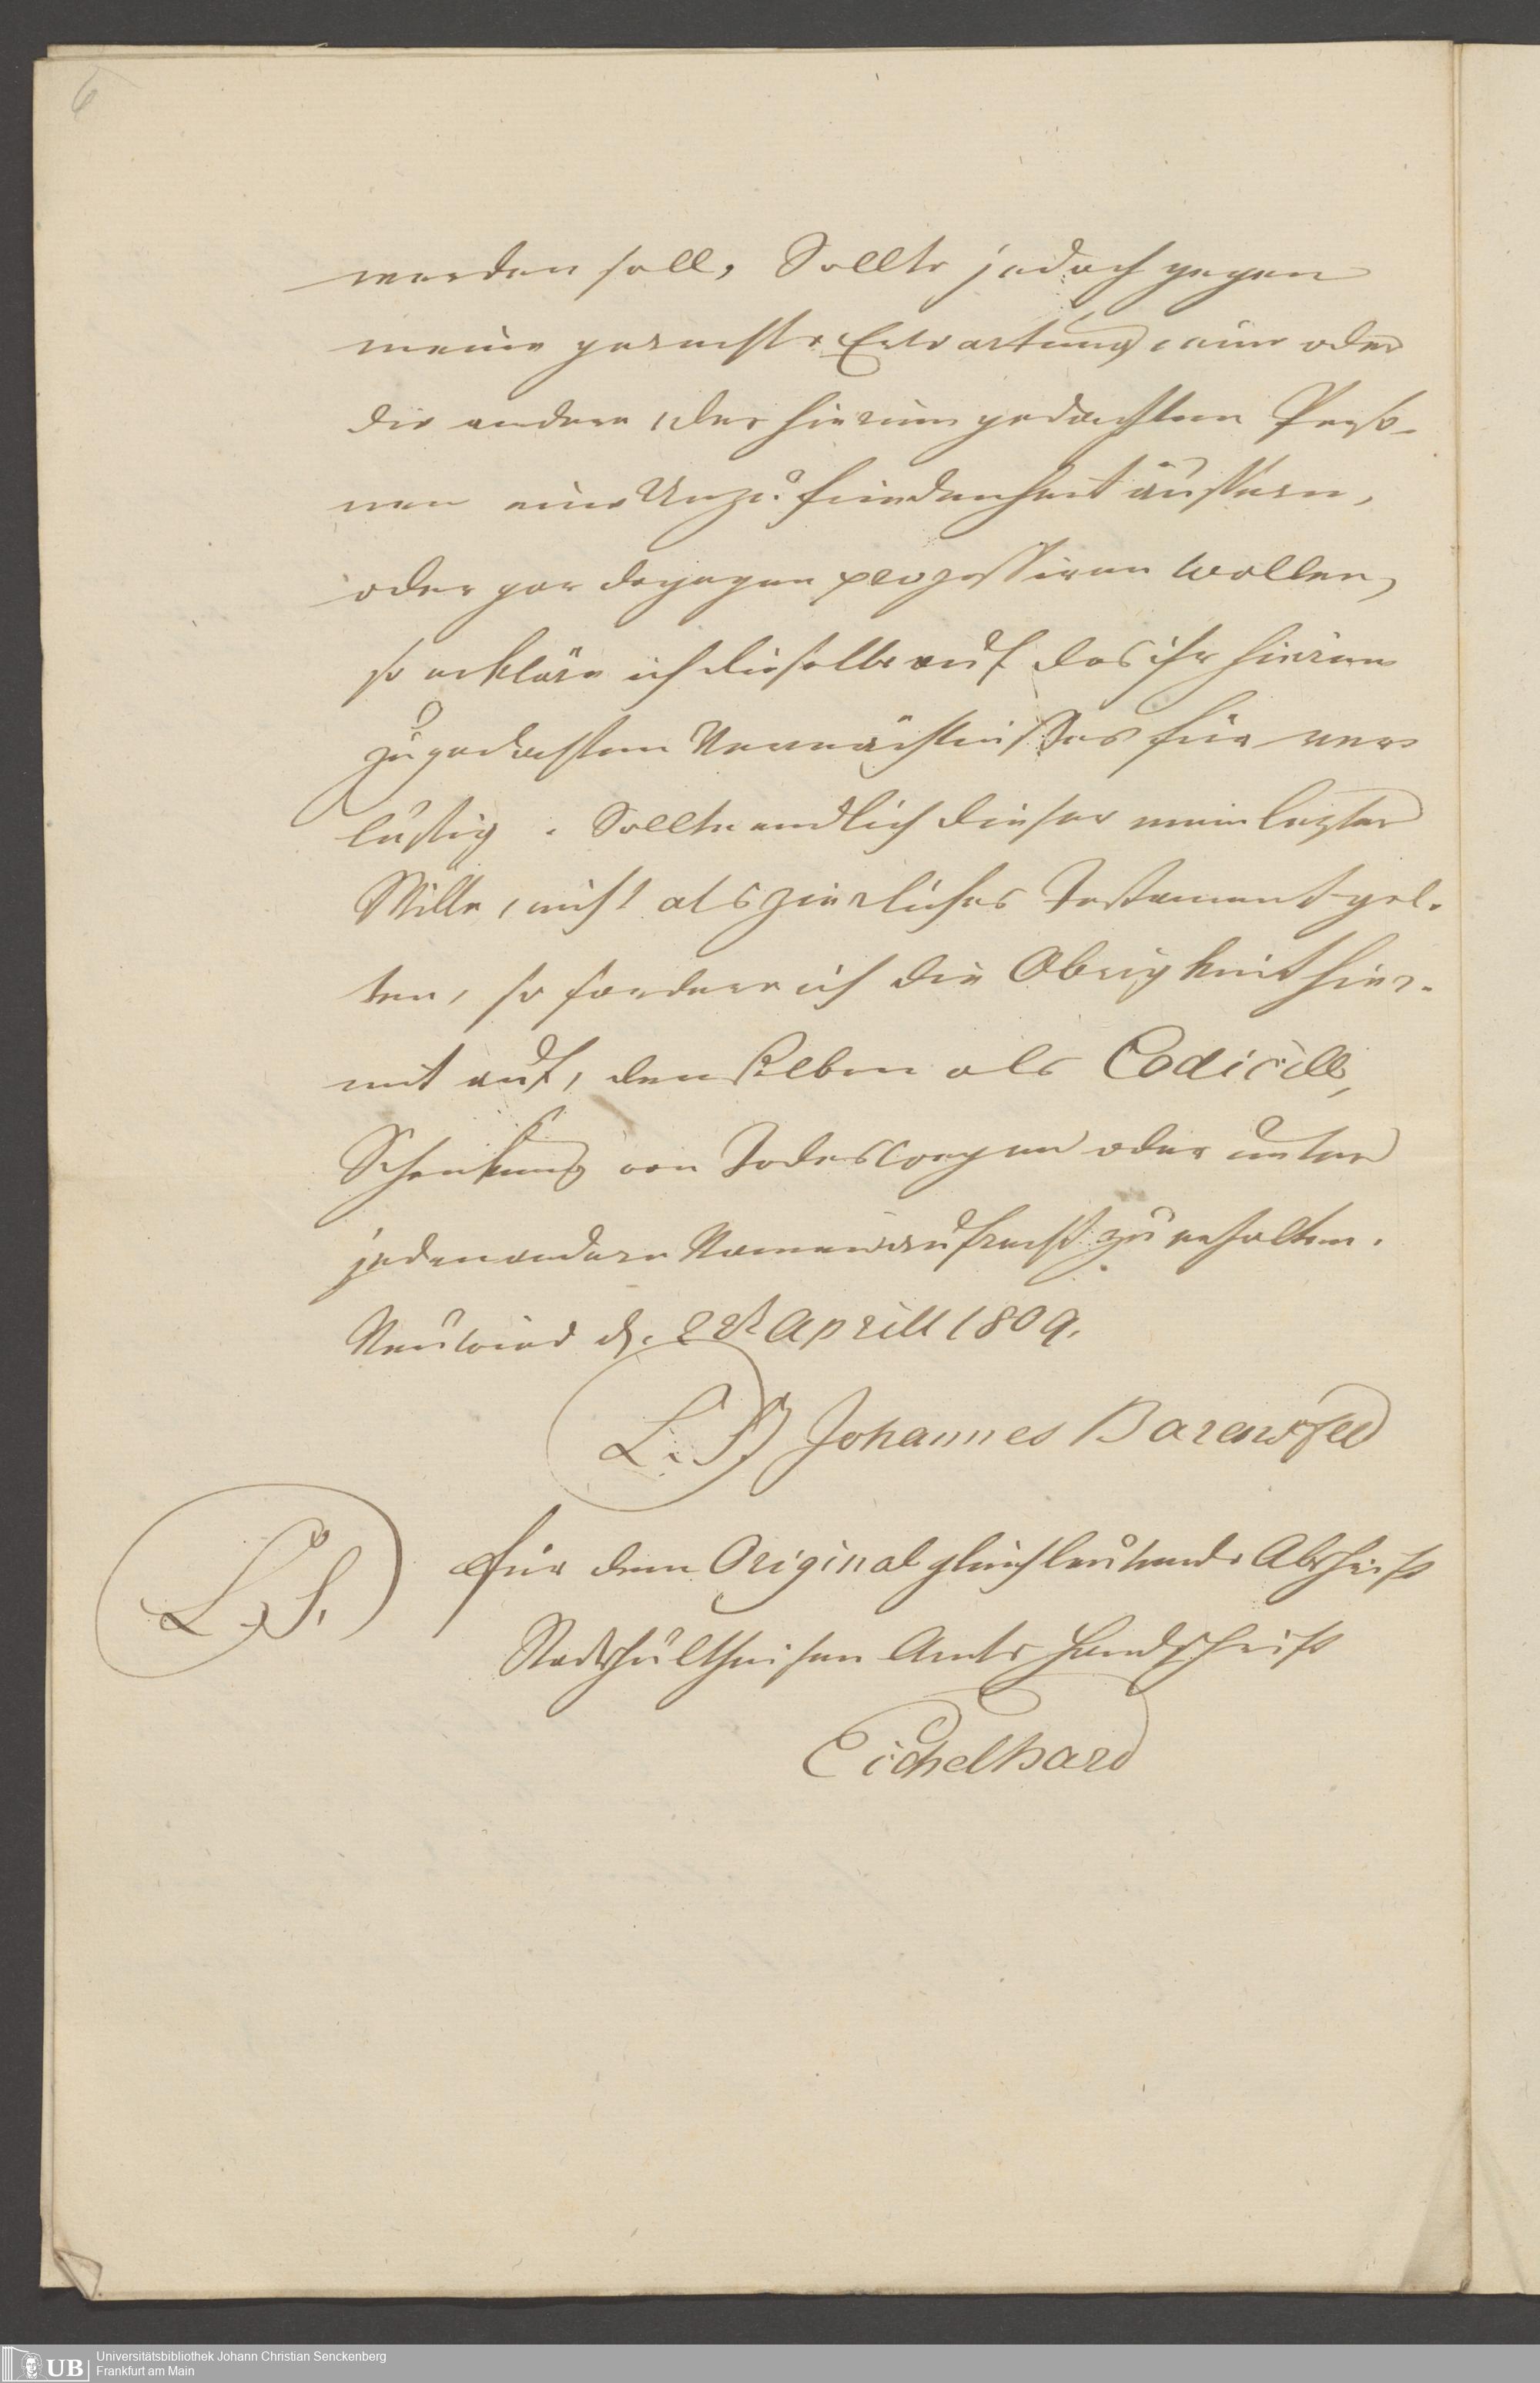 6
werden soll, Sollte jedoch gegen
meine gerechte Erwartung eine oder
die andere, der hierinn gedachten Perso-
nen eine Unzufriedenheit äußern,
oder gar dagegen prozessiren wollen,
so erkläre ich dieselbe auf das ihr hierinn
zugedachten Vermächtnisses für ver
lustig. Sollte endlich dieser mein lezter
Wille, nicht als zierliches Testament gel-
ten, so fordere ich die Obrigkeit hier-
mit auf, denselben als Codicill,
Schenkung von Todeswegen oder unter
jedem andern Namen aufrecht zu erhalten.
Neuwied d. 22t Aprill 1809.
L. S. Johannes Barensfeld
L. S. Für dem Original gleichlautende Abschrift
Stadtschultheisen Amts Handschrift
Eichelhard
UB Universitätsbibliothek Johann Christian Senckenberg
Frankfurt am Main